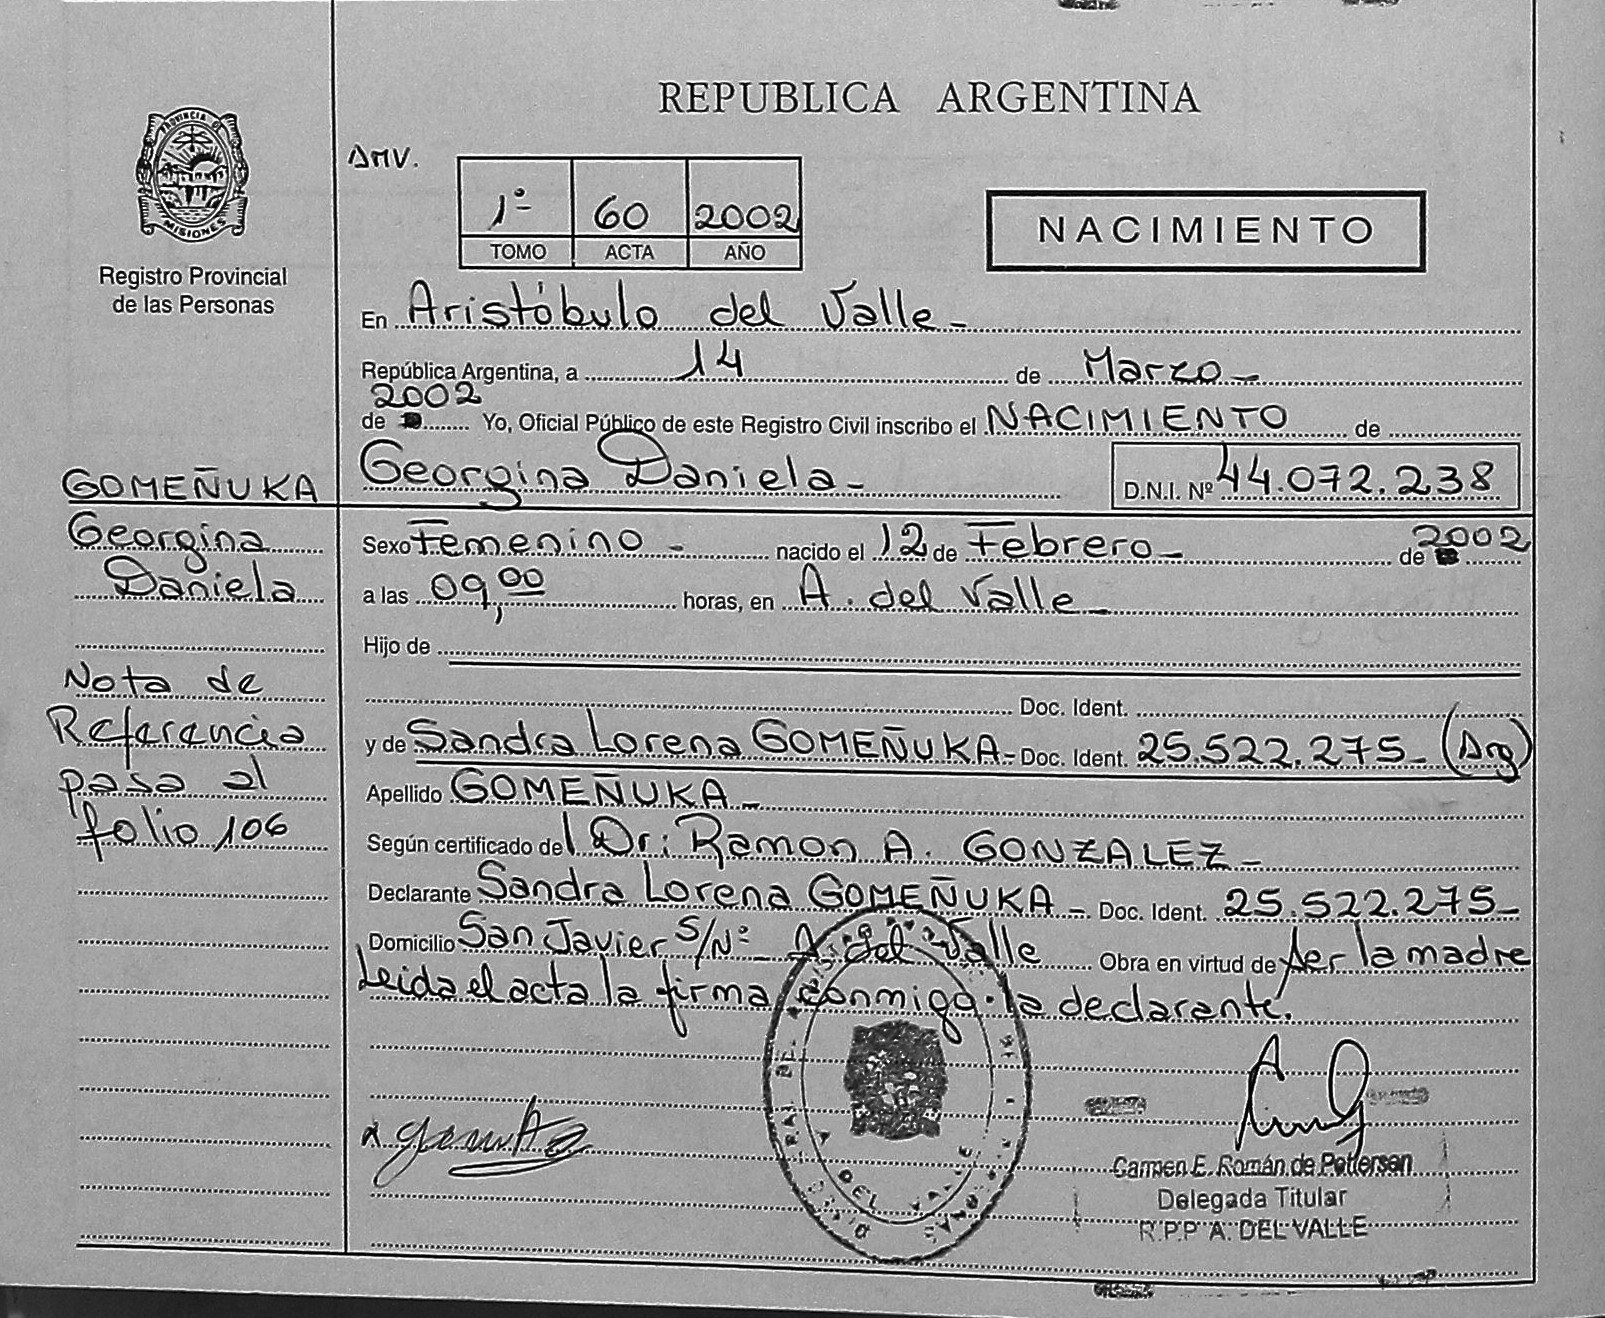 REPUBLICA ARGENTINA
PROVINCIA DE
MISIONES
Registro Provincial
de las Personas
DMV.
1º 60 2002
TOMO ACTA AÑO
NACIMIENTO
En Aristóbulo del Valle -
República Argentina, a 14 de Marzo -
2002
de Yo, Oficial Público de este Registro Civil inscribo el NACIMIENTO de
Georgina Daniela - D.N.I. Nº 44.072.238
GOMEÑUKA
Georgina
Daniela
Nota de
Referencia
pasa al
folio 106
Sexo Femenino - nacido el 12 de Febrero - de 2002
a las 09,00 horas, en A. del Valle -
Hijo de
Doc. Ident.
y de Sandra Lorena GOMEÑUKA - Doc. Ident. 25.522.275 - (Arg)
Apellido GOMEÑUKA -
Según certificado del Dr: Ramon A. GONZALEZ -
Declarante Sandra Lorena GOMEÑUKA - Doc. Ident. 25.522.275 -
Domicilio San Javier S/Nº - A del Valle Obra en virtud de ser la madre
Leida el acta la firma conmigo la declarante.
A. DEL VALLE
Carmen E. Román de Pettersen
Delegada Titular
R.P.P A. DEL VALLE